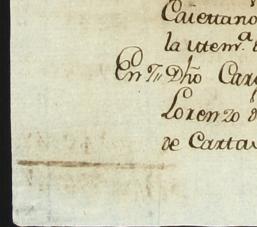 Caiettano
la uttem.ª
En 7 Dho Car
Lorenzo d
de Carta